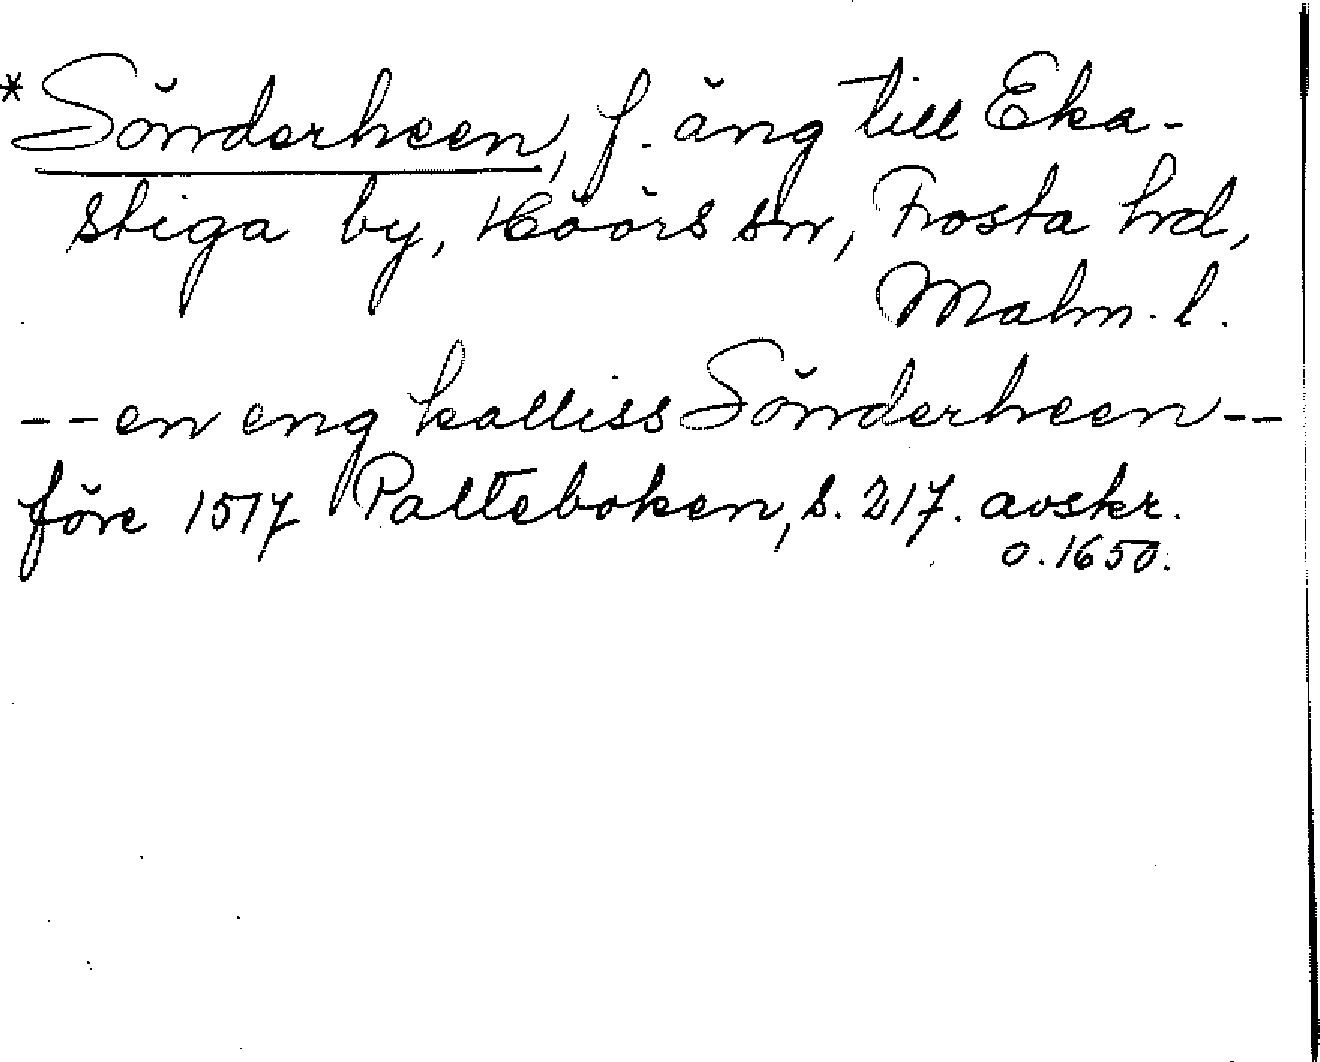 *Sönderheen, f. äng till Eka-
stiga by, Höörs sn, Frosta hrd,
Malm. l.
--en eng kalliss Sönderheen--
före 1517 Palteboken, s. 217. avskr.
o. 1650.